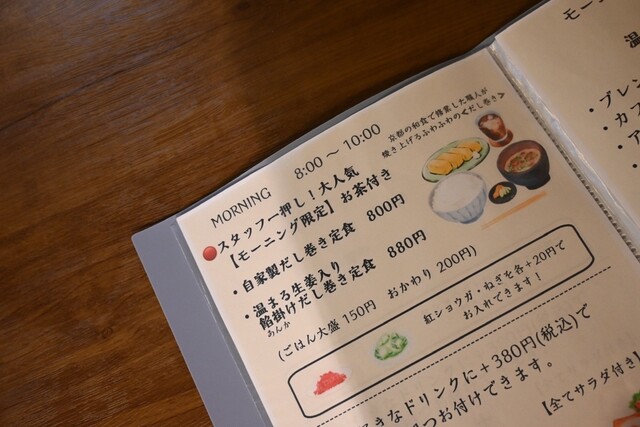 MORNING 8:00～10:00
京都の和食で修業した職人が
焼き上げるふわふわの<だし巻き>
スタッフ一押し！大人気
【モーニング限定】お茶付き
・自家製だし巻き定食 800円
・温まる生姜入り
餡掛けだし巻き定食 880円
あんか
(ごはん大盛 150円 おかわり 200円)
紅ショウガ・ねぎを各＋20円で
お入れできます！
きなドリンクに＋380円(税込)で
つお付けできます。
【全てサラダ付き】
モー
温
・ブレン
・カフ
・ア